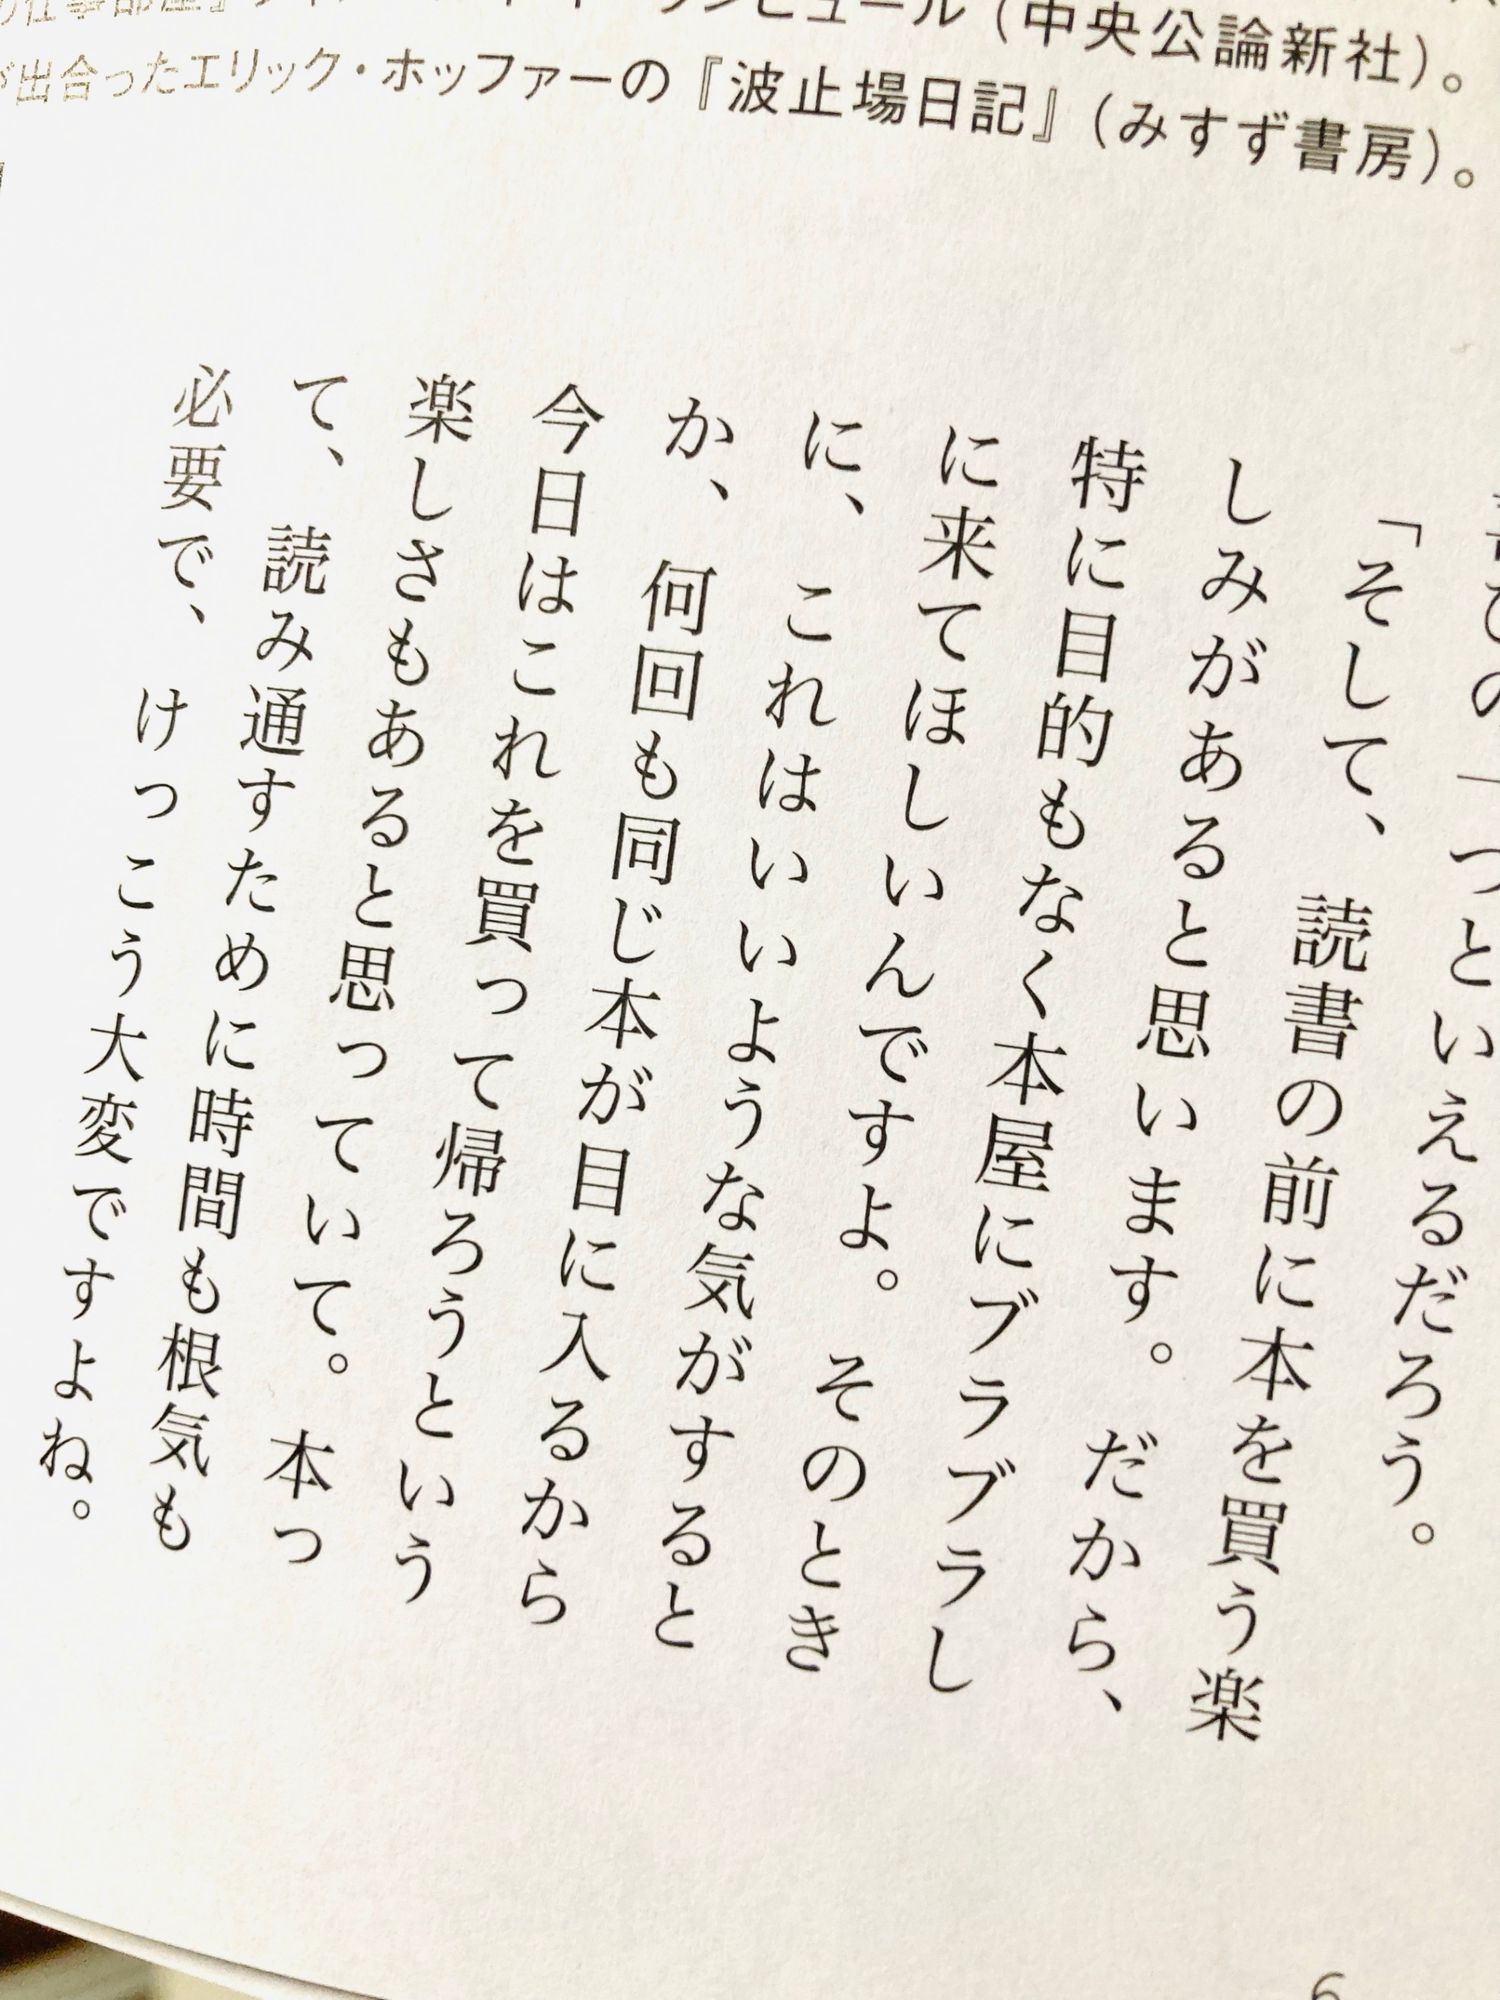 ンビュール（中央公論新社）。
出合ったエリック・ホッファーの『波止場日記』（みすず書房）。
の一つといえるだろう。
「そして、読書の前に本を買う楽
しみがあると思います。だから、
特に目的もなく本屋にブラブラし
に来てほしいんですよ。そのとき
に、これはいいような気がすると
か、何回も同じ本が目に入るから
今日はこれを買って帰ろうという
楽しさもあると思っていて。本っ
て、読み通すために時間も根気も
必要で、けっこう大変ですよね。